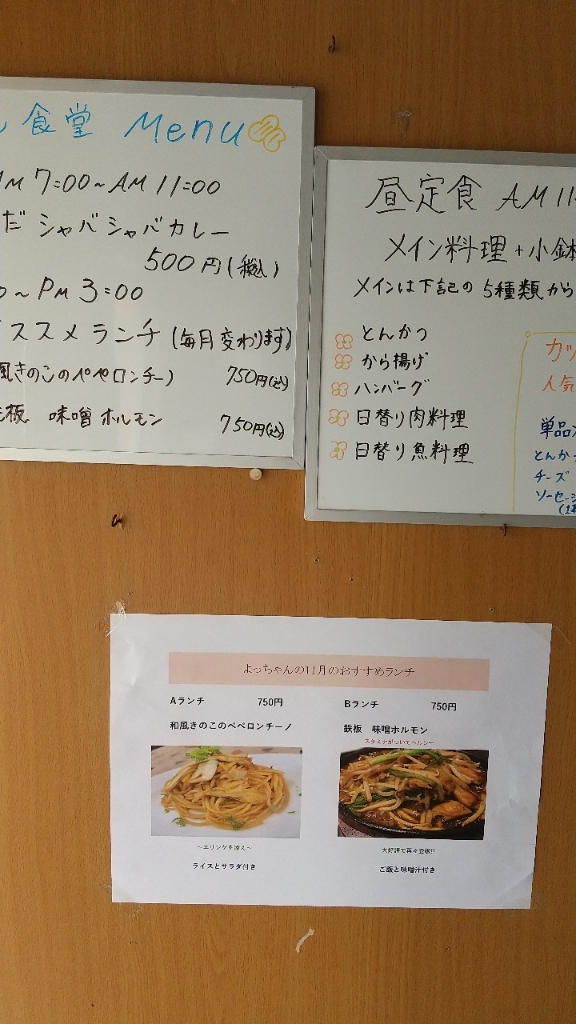 食堂 Menu
AM 7:00～AM 11:00
だ シャバシャバカレー
500円(税込)
～PM 3:00
ススメランチ (毎月変わります)
風きのこのペペロンチーノ 750円(込)
板 味噌ホルモン 750円(込)
昼定食 AM 11
メイン料理+小鉢
メインは下記の5種類から
とんかつ
から揚げ
ハンバーグ
日替り肉料理
日替り魚料理
カッ
人気
単品
とんかつ
チーズ
ソーセージ
よっちゃんの11月のおすすめランチ
Aランチ 750円
和風きのこのペペロンチーノ
～エリンギを添え～
ライスとサラダ付き
Bランチ 750円
鉄板 味噌ホルモン
スタミナがついてヘルシー
大好評で再々登場!!
ご飯と味噌汁付き